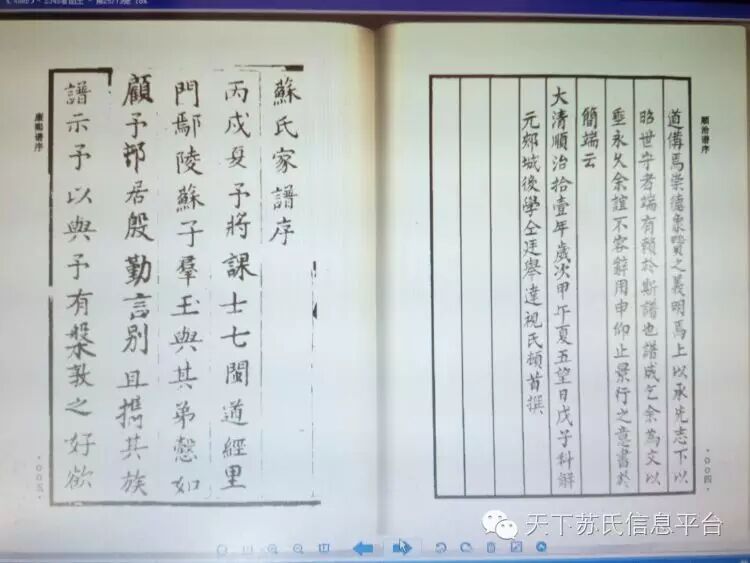 順治谱序
道備焉崇德象賢之義明焉上以承先志下以
昭世守者端有賴於斯譜也譜成乞余為文以
垂永久余誼不容辭用申仰止景行之意書於
簡端云
大清順治拾壹年歲次甲午夏五望日戊子科解
元郟城後學仝廷舉達視氏頓首撰
·〇〇四·
康熙谱序
蘇氏家譜序
丙戌夏予將課士七閩道經里
門鄢陵蘇子羣玉與其弟愨如
顧予邨居殷勤言別且攜其族
譜示予以與予有槃敦之好欲
·〇〇五·
天下苏氏信息平台